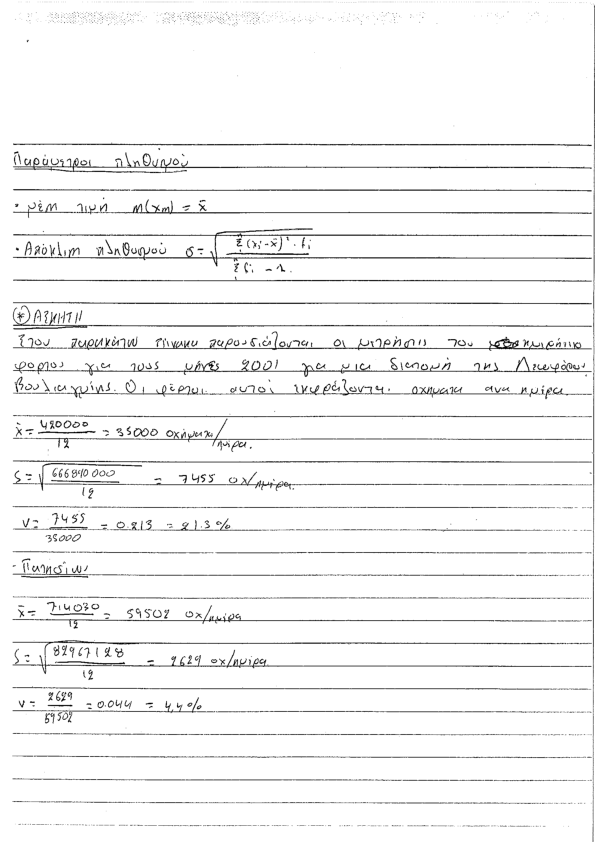 Παράμετροι πληθυσμού
• μέση τιμή m(xm) = x̄
• Απόκλιση πληθυσμού σ = √( Σ(xi-x̄)²·fi / Σfi - 1 )
(*) ΑΣΚΗΣΗ
Στον παρακάτω πίνακα παρουσιάζονται οι μετρήσεις του ημερήσιο
φόρτος για τους μήνες 2001 για μια διατομή της Λεωφόρου
Βουλιαγμένης. Οι φόρτοι αυτοί εκφράζονται οχήματα ανα ημέρα.
x̄ = 420000 / 12 = 35000 οχήματα/ημέρα.
S = √( 666840000 / 12 ) = 7455 οχ/ημέρα.
V = 7455 / 35000 = 0.213 = 21.3 %
- Πατησίων
x̄ = 714030 / 12 = 59502 οχ/ημέρα
S = √( 82967128 / 12 ) = 2629 οχ/ημέρα
V = 2629 / 59502 = 0.044 = 4,4 %